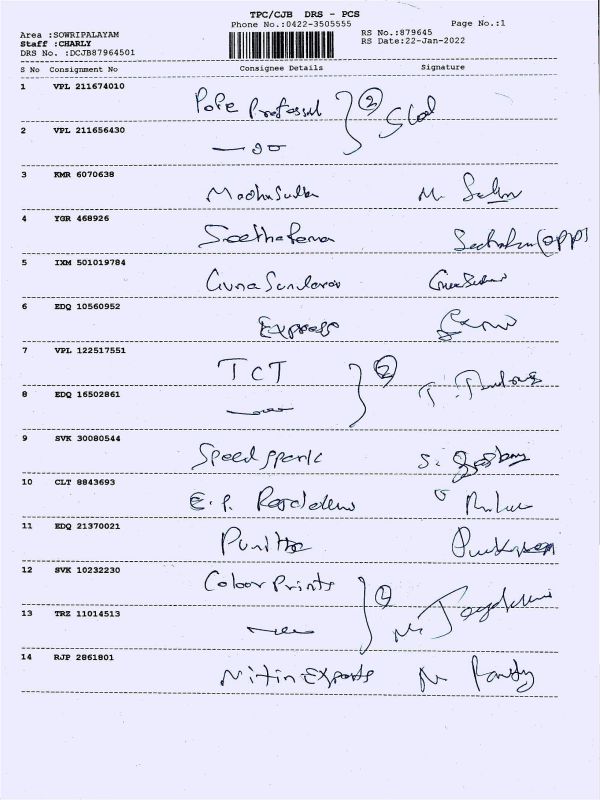 TPC/CJB DRS - PCS
Phone No.:0422-3505555 Page No.:1
Area :SOWRIPALAYAM RS No.:879645
Staff :CHARLY RS Date:22-Jan-2022
DRS No. :DCJB87964501
S No Consignment No Consignee Details Signature
1 VPL 211674010 Pope Professnl 2
2 VPL 211656430
3 KMR 6070638 Madhu M.
4 YGR 468926 Seetharama (opp)
5 IXM 501019784 Guna Sundaran
6 EDQ 10560952 Express
7 VPL 122517551 TCT 2
8 EDQ 16502861 T.
9 SVK 30080544 Speed spark S.
10 CLT 8843693 E. P.
11 EDQ 21370021 Punitha
12 SVK 10232230 Colour Prints 2
13 TRZ 11014513
14 RJP 2861801 Nitin Exports